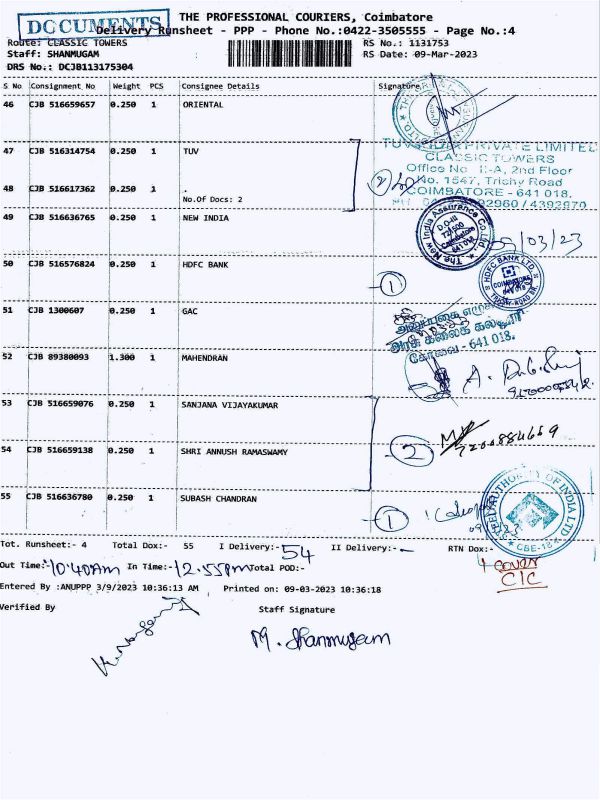 DOCUMENTS
THE PROFESSIONAL COURIERS, Coimbatore
Delivery Runsheet - PPP - Phone No.:0422-3505555 - Page No.:4
Route: CLASSIC TOWERS
RS No.: 1131753
Staff: SHANMUGAM
RS Date: 09-Mar-2023
DRS No.: DCJB113175304
S No Consignment No Weight PCS Consignee Details Signature
46 CJB 516659657 0.250 1 ORIENTAL
47 CJB 516314754 0.250 1 TUV
PRIVATE LIMITED
CLASSIC TOWERS
Office No II-A, 2nd Floor
No. 1547, Trichy Road
COIMBATORE - 641 018.
48 CJB 516617362 0.250 1 .
No.Of Docs: 2
2
49 CJB 516636765 0.250 1 NEW INDIA
The New India Assurance Co.Ltd
D.O-III
721500
Coimbatore
641 018
/03/23
50 CJB 516576824 0.250 1 HDFC BANK
1
HDFC BANK LTD.
COIMBATORE
51 CJB 1300607 0.250 1 GAC
அரசு கலைக் கல்லூரி
கோவை - 641 018.
52 CJB 89380093 1.300 1 MAHENDRAN
53 CJB 516659076 0.250 1 SANJANA VIJAYAKUMAR
54 CJB 516659138 0.250 1 SHRI ANNUSH RAMASWAMY
2
7200884659
55 CJB 516636780 0.250 1 SUBASH CHANDRAN
1
AUTHORITY OF INDIA LTD
CBE-18
Tot. Runsheet:- 4 Total Dox:- 55 I Delivery:- 54 II Delivery:- - RTN Dox:-
1 cover
CIC
Out Time:- 10:40Am In Time:- 12.55Pm Total POD:-
Entered By :ANUPPP 3/9/2023 10:36:13 AM Printed on: 09-03-2023 10:36:18
Verified By
Staff Signature
M. Shanmugam